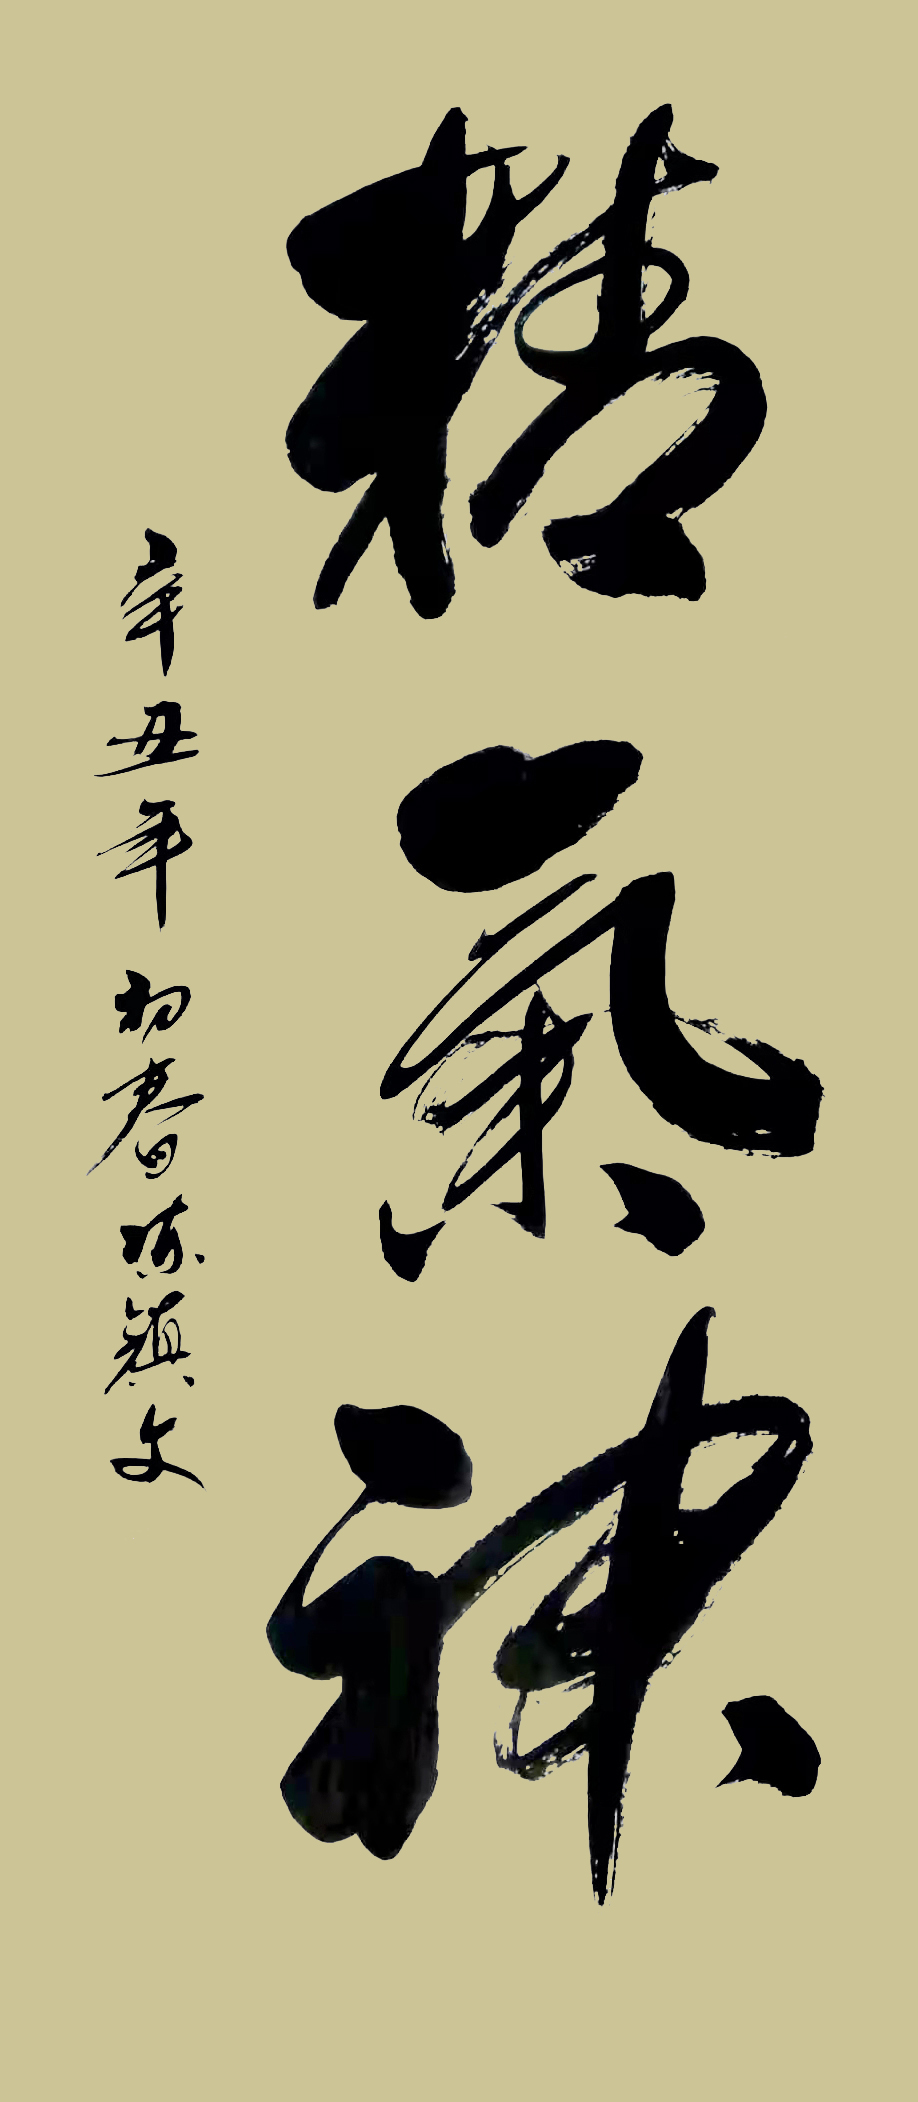 精氣神
辛丑年初春陈镇文